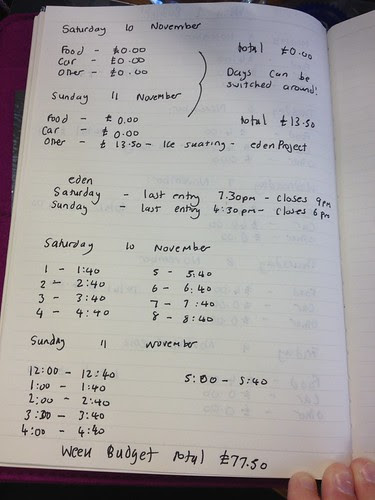 Saturday 10 November
Food - £0.00
Car - £0.00
Other - £0.00
total £0.00
Days can be
switched around!
Sunday 11 November
Food - £0.00
Car - £0.00
Other - £13.50 - Ice skating - eden Project
total £13.50
eden
Saturday - last entry 7.30pm - closes 9pm
Sunday - last entry 4:30pm - closes 6pm
Saturday 10 November
1 - 1:40
2 - 2:40
3 - 3:40
4 - 4:40
5 - 5:40
6 - 6:40
7 - 7:40
8 - 8:40
Sunday 11 November
12:00 - 12:40
1:00 - 1:40
2:00 - 2:40
3:00 - 3:40
4:00 - 4:40
5:00 - 5:40
Week Budget total £77.50